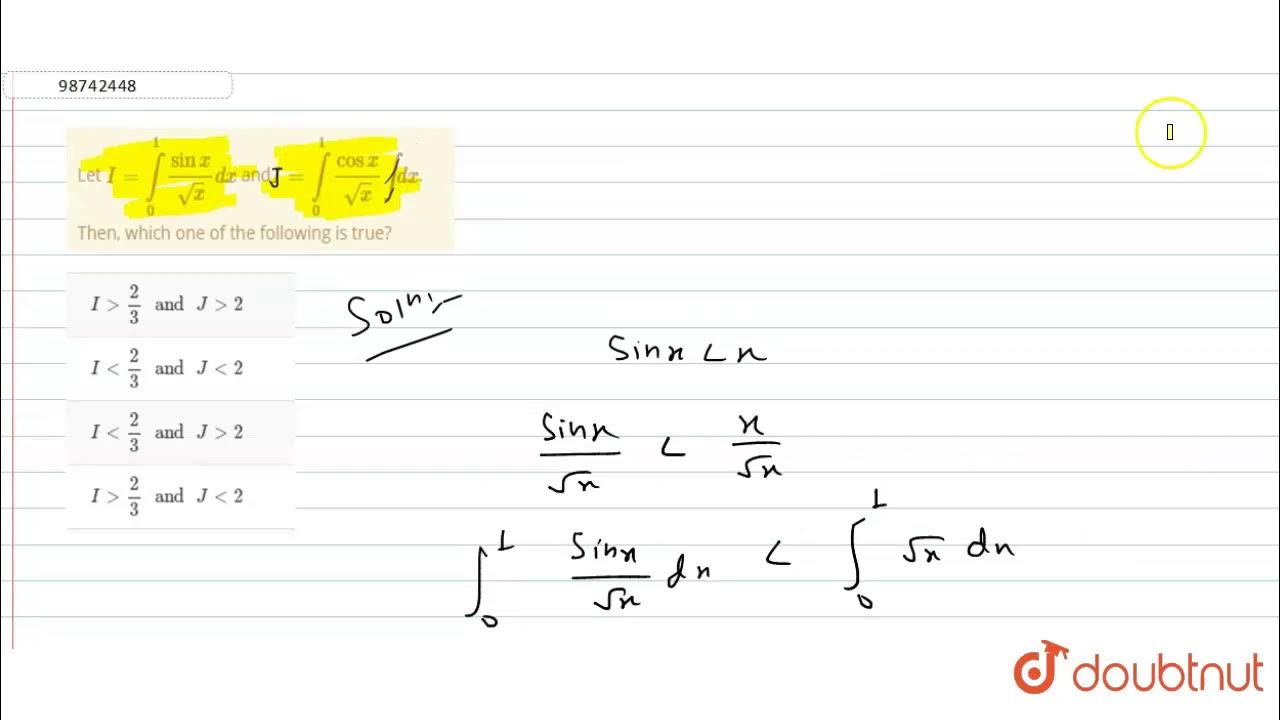 98742448
Let I = ∫₀¹ sin x/√x dx and J = ∫₀¹ cos x/√x dx.
Then, which one of the following is true?
I > 2/3 and J > 2
I < 2/3 and J < 2
I < 2/3 and J > 2
I > 2/3 and J < 2
Solⁿ:-
Sinx < x
Sinx/√x < x/√x
∫₀¹ Sinx/√x dx < ∫₀¹ √x dx
doubtnut